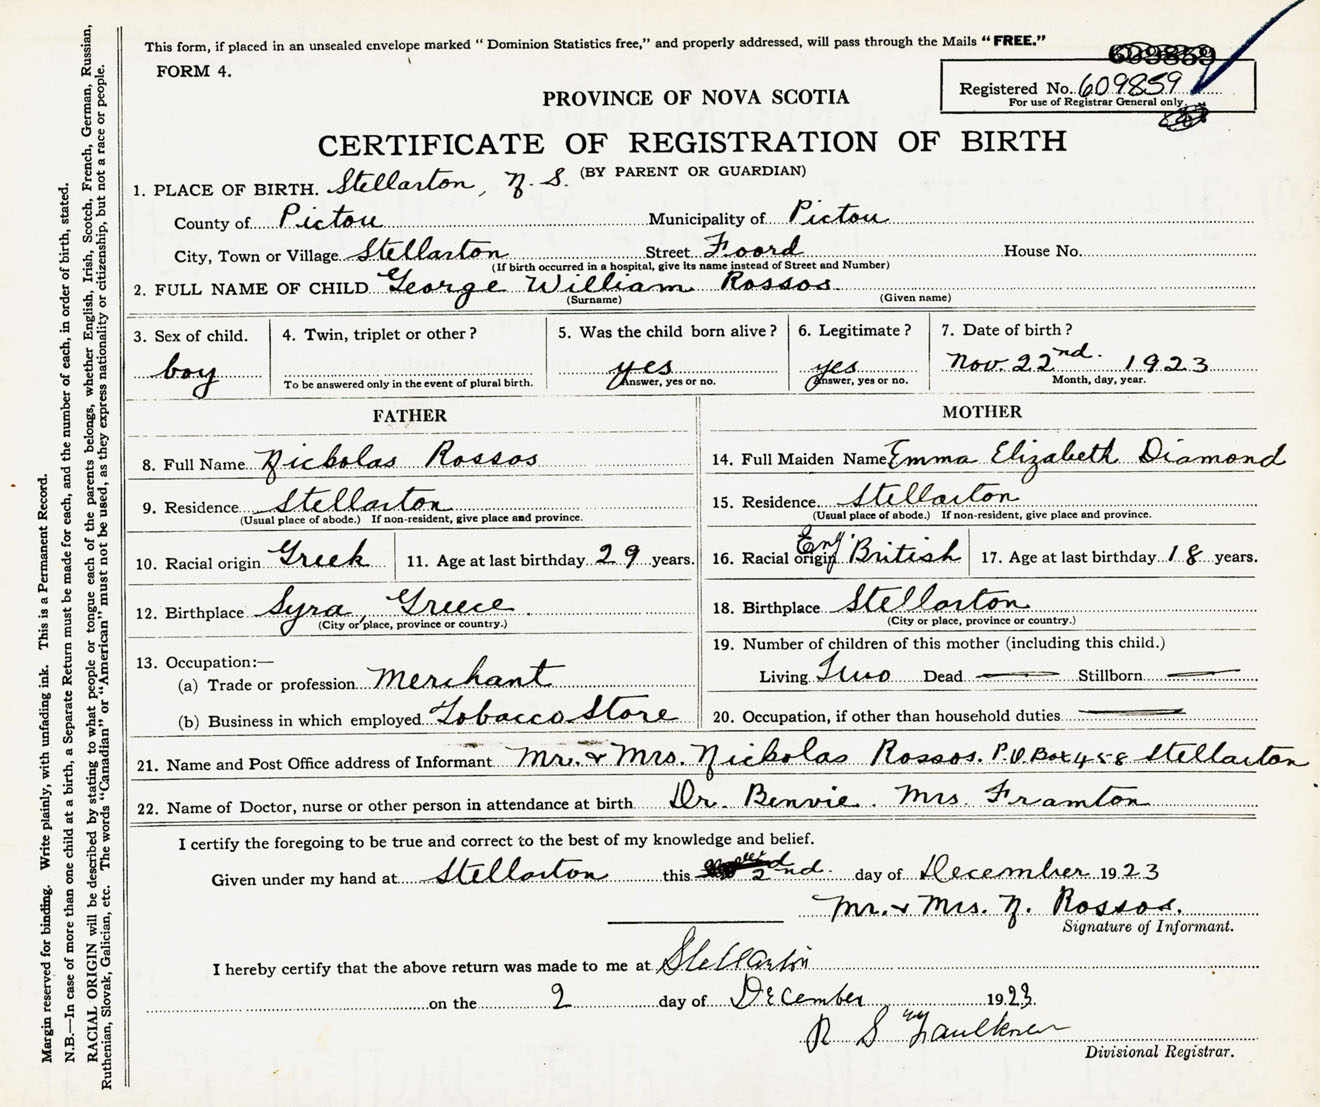 This form, if placed in an unsealed envelope marked "Dominion Statistics free," and properly addressed, will pass through the Mails "FREE."
FORM 4.
609859
Registered No. 609859
For use of Registrar General only.
PROVINCE OF NOVA SCOTIA
CERTIFICATE OF REGISTRATION OF BIRTH
(BY PARENT OR GUARDIAN)
1. PLACE OF BIRTH. Stellarton, N. S.
County of Pictou Municipality of Pictou
City, Town or Village Stellarton Street Foord House No.
(If birth occurred in a hospital, give its name instead of Street and Number)
2. FULL NAME OF CHILD George William Rossos
(Surname) (Given name)
3. Sex of child. 4. Twin, triplet or other? 5. Was the child born alive? 6. Legitimate? 7. Date of birth?
boy yes yes Nov. 22nd. 1923
To be answered only in the event of plural birth. Answer, yes or no. Answer, yes or no. Month, day, year.
FATHER MOTHER
8. Full Name Nickolas Rossos 14. Full Maiden Name Emma Elizabeth Diamond
9. Residence Stellarton 15. Residence Stellarton
(Usual place of abode.) If non-resident, give place and province. (Usual place of abode.) If non-resident, give place and province.
10. Racial origin Greek 11. Age at last birthday 29 years. 16. Racial origin Eng British 17. Age at last birthday 18 years.
12. Birthplace Syra, Greece. 18. Birthplace Stellarton
(City or place, province or country.) (City or place, province or country.)
19. Number of children of this mother (including this child.)
13. Occupation:—
(a) Trade or profession Merchant Living Two Dead — Stillborn —
(b) Business in which employed Tobacco Store 20. Occupation, if other than household duties —
21. Name and Post Office address of Informant Mr. & Mrs. Nickolas Rossos. P.O. Box 458 Stellarton
22. Name of Doctor, nurse or other person in attendance at birth Dr. Benvie. Mrs Framton
I certify the foregoing to be true and correct to the best of my knowledge and belief.
Given under my hand at Stellarton this 2nd. day of December 1923
Mr. & Mrs. N. Rossos.
Signature of Informant.
I hereby certify that the above return was made to me at Stellarton
on the 2 day of December 1923
R S Faulkner
Divisional Registrar.
Margin reserved for binding. Write plainly, with unfading ink. This is a Permanent Record.
N.B.—In case of more than one child at a birth, a Separate Return must be made for each, and the number of each, in order of birth, stated.
RACIAL ORIGIN will be described by stating to what people or tongue each of the parents belongs, whether English, Irish, Scotch, French, German, Russian,
Ruthenian, Slovak, Galician, etc. The words "Canadian" or "American" must not be used, as they express nationality or citizenship, but not a race or people.